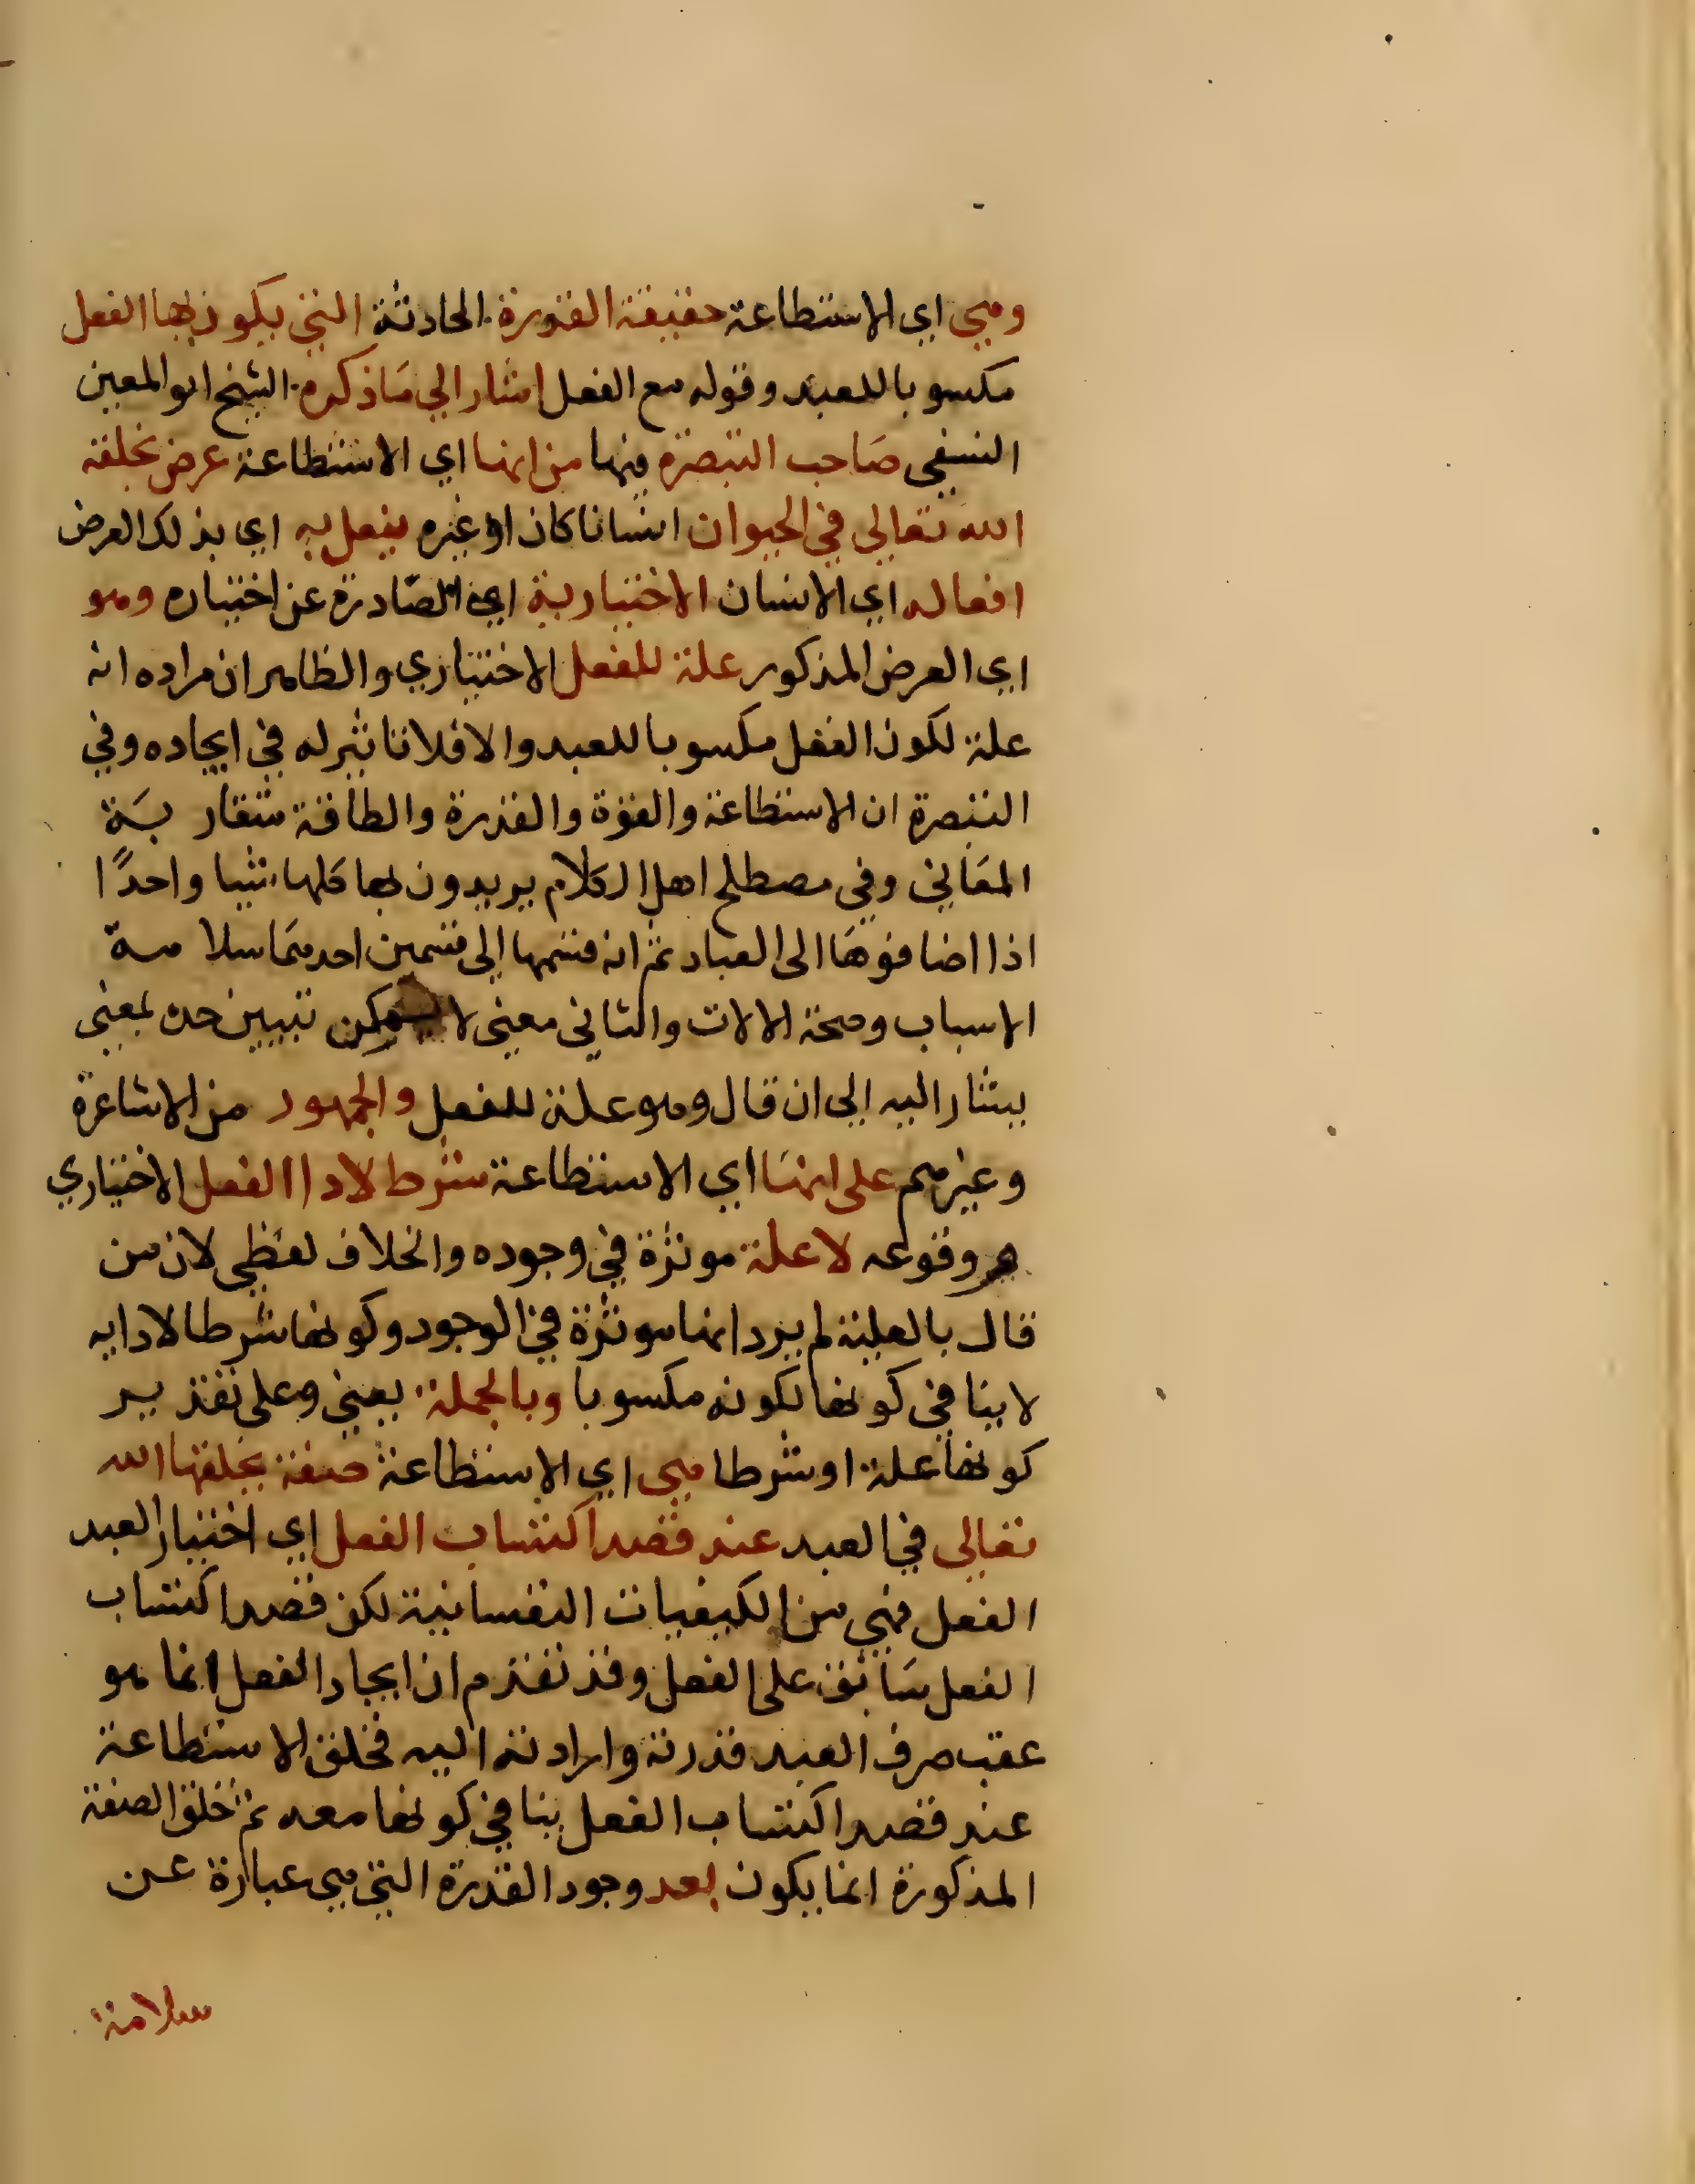 وهي اي الاستطاعة حقيقة القدرة الحادثة التي يكون بها الفعل
مكسوبا للعبد وقوله مع الفعل اشار الي ما ذكره الشيخ ابو المعين
النسفي صَاحب التبصرة فيها من انها اي الاستطاعة عرض يخلقه
الله تعالي في الحيوان انسانا كان او غيره يفعل به اي بذلك العرض
افعاله اي الانسان الاختيارية اي الصّادرة عن اختياره وهو
اي العرض المذكور علة للفعل الاختياري والظاهر ان مراده انه
علة لكون الفعل مكسوبا للعبد والا فلا تاثير له في ايجاده وفي
التبصرة ان الاستطاعة والقوة والقدرة والطاقة متقار بَة
المعَاني وفي مصطلح اهل الكلام يريدون بها كلها شيا واحدًا
اذا اضافوهَا الى العباد ثم انه قسمها إلى قسمين احدهمَا سلا مة
الاسباب وصحة الالات والثاني معنى لا يمكن تبيين حده بمعنى
يشار اليه الى ان قال وهو علة للفعل والجمهور من الاشاعرة
وغيرهم على انهَا اي الاستطاعة شرط لادا الفعل الاختياري
وقوعه لا علة موثرة في وجوده والخلاف لفظي لان من
قال بالعلية لم يرد انها موثرة في الوجود وكونها شرطا لادايه
لا ينافي كونها لكونه مكسوبا وبالجملة يعني وعلى تقد ير
كونها علة او شرطا هي اي الاستطاعة صفة يخلقها الله
تعالى في العبد عند قصد اكتساب الفعل اي اختيار العبد
الفعل فهي من الكيفيات النفسانية لكن قصد اكتساب
الفعل سَابق على الفعل وقد تقدم ان ايجاد الفعل انما هو
عقب صرف العبد قدرته وارادته اليه فخلق الاستطاعة
عند قصد اكتساب الفعل ينافي كونها معه ثم خلق الصفة
المذكورة انما يكون بعد وجود القدرة التي هي عبارة عن
سلامة